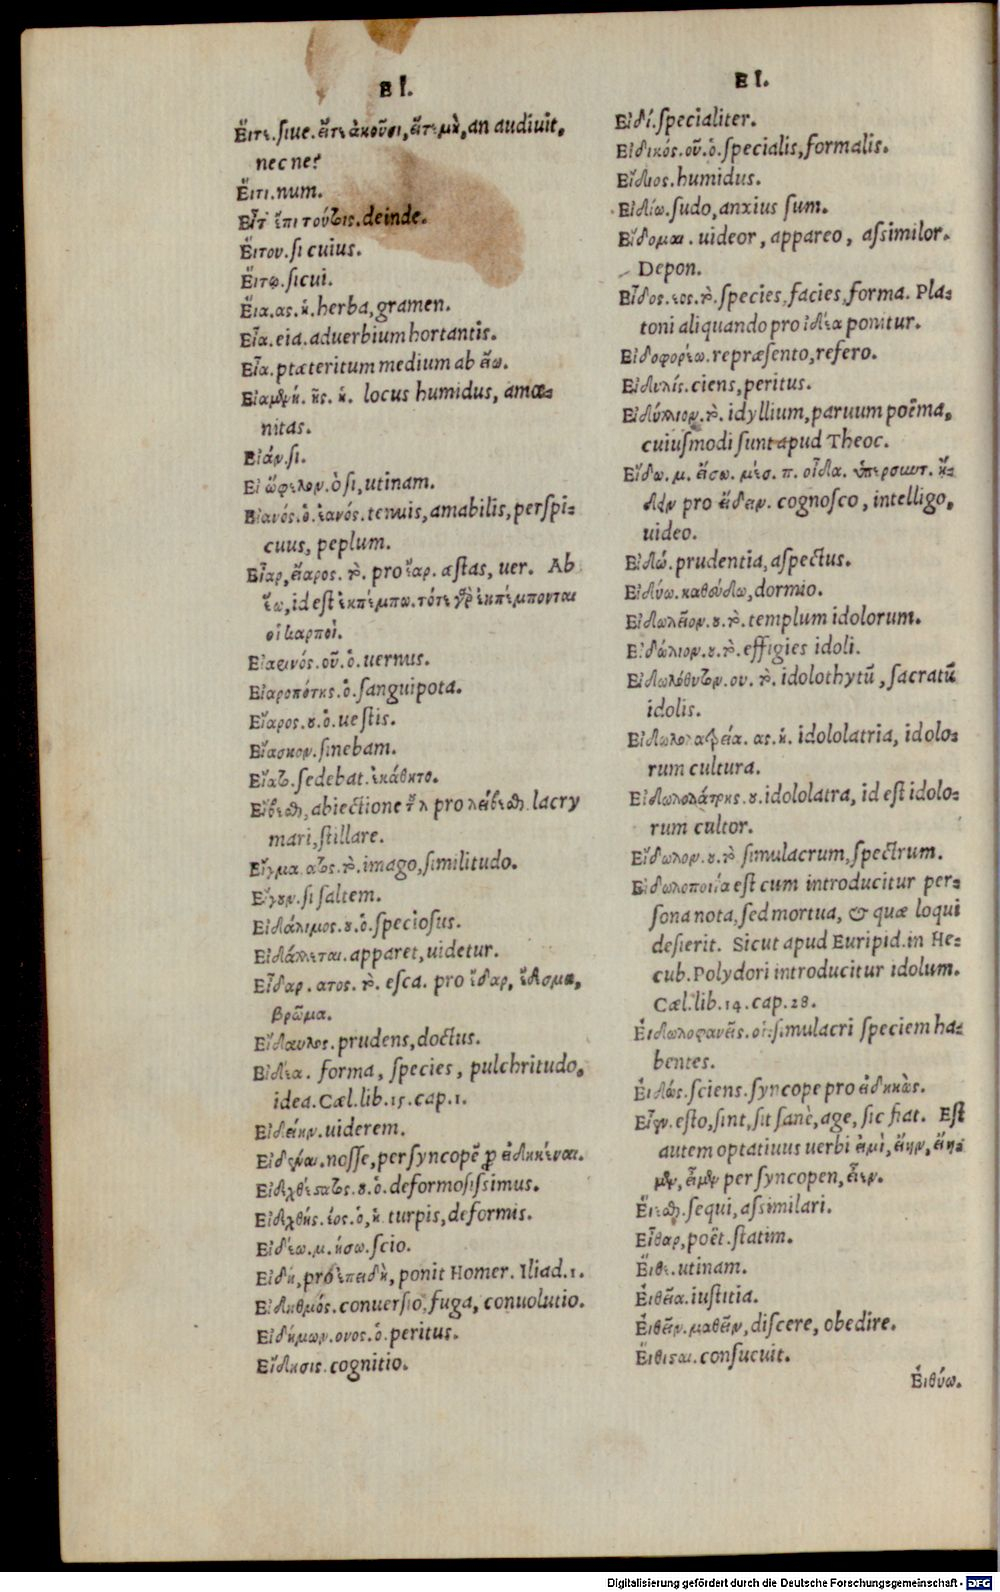 ΕΙ.
Εἴτε.ſiue.εἴτε ἀκούσι, εἴτε μὴ, an audiuit,
nec ne?
Εἴτι.num.
Εἶτ᾽ ἐπὶ τούτοις.deinde.
Εἴτου.ſi cuius.
Εἴτῳ.ſicui.
Εἴα.ας.ἡ.herba, gramen.
Εἶα.eia.aduerbium hortantis.
Εἶα.ptæteritum medium ab ἔω.
Εἰαμενή.ῆς.ἡ. locus humidus, amœ-
nitas.
Εἰάν.ſi.
Εἰ ὤφελον.ὃ ſi, utinam.
Εἰανός.ὁ.ἑανός.tenuis, amabilis, perſpi-
cuus, peplum.
Εἶαρ, εἴαρος.τὸ. pro ἔαρ. æſtas, uer. Ab
ἔω, id eſt ἐκπέμπω.τότε γὰρ ἐκπέμπονται
οἱ καρποί.
Εἰαρινός.οῦ.ὁ.uernus.
Εἰαροπότης.ὁ.ſanguipota.
Εἴαρος.ου.ὁ.ueſtis.
Εἴασκον.ſinebam.
Εἴατο.ſedebat.ἐκάθητο.
Εἴβεσθαι, abiectione τοῦ λ pro λείβεσθαι.lacry
mari, ſtillare.
Εἴγμα.ατος.τὸ.imago, ſimilitudo.
Εἴγουν.ſi ſaltem.
Εἰδάλιμος.ου.ὁ.ſpecioſus.
Εἰδάλλεται.apparet, uidetur.
Εἶδαρ.ατος.τὸ.eſca. pro ἔδαρ, ἔδεσμα,
βρῶμα.
Εἴδαυλος.prudens, doctus.
Εἰδέα. forma, ſpecies, pulchritudo,
idea.Cæl.lib.15.cap.1.
Εἰδείην.uiderem.
Εἰδέναι.noſſe, per ſyncopē ꝓ εἰδηκέναι.
Εἰδεχθέστατος.ου.ὁ.deformoſiſsimus.
Εἰδεχθής.έος.ὁ, ἡ.turpis, deformis.
Εἰδέω.μ.ήσω.ſcio.
Εἰδή, pro ἐπειδὴ, ponit Homer. Iliad.1.
Εἰδηθμός.conuerſio, fuga, conuolutio.
Εἰδήμων.ονος.ὁ.peritus.
Εἴδησις.cognitio.
ΕΙ.
Εἰδί.ſpecialiter.
Εἰδικός.οῦ.ὁ.ſpecialis, formalis.
Εἴδιος.humidus.
Εἰδίω.ſudo, anxius ſum.
Εἴδομαι.uideor, appareo, aſsimilor.
Depon.
Εἶδος.εος.τὸ.ſpecies, facies, forma. Pla-
toni aliquando pro ἰδέα ponitur.
Εἰδοφορέω.repræſento, refero.
Εἰδυλίς.ciens, peritus.
Εἰδύλλιον.τὸ.idyllium, paruum poëma,
cuiuſmodi ſunt apud Theoc.
Εἴδω.μ.είσω.μέσ.π.οἶδα. ὑπερσυντ.ᾔ-
δειν pro εἴδειν. cognoſco, intelligo,
uideo.
Εἰδώ.prudentia, aſpectus.
Εἰδύω.καθεύδω, dormio.
Εἰδωλεῖον.ου.τὸ.templum idolorum.
Εἰδώλιον.ου.τὸ.effigies idoli.
Εἰδωλόθυτον.ου.τὸ.idolothytū, ſacratū
idolis.
Εἰδωλολατρεία.ας.ἡ.idololatria, idolo-
rum cultura.
Εἰδωλολάτρης.ου.idololatra, id eſt idolo-
rum cultor.
Εἴδωλον.ου.τὸ ſimulacrum, ſpectrum.
Εἰδωλοποιία eſt cum introducitur per-
ſona nota, ſed mortua, & quæ loqui
deſierit. Sicut apud Euripid.in He-
cub.Polydori introducitur idolum.
Cæl.lib.14.cap.28.
Εἰδωλοφανεῖς.οἱ.ſimulacri ſpeciem ha-
bentes.
Εἰδώς.ſciens.ſyncope pro εἰδηκώς.
Εἶεν.eſto, ſint, ſit ſanè, age, ſic fiat. Eſt
autem optatiuus uerbi εἰμὶ, εἴην, εἴη-
μεν, εἶμεν per ſyncopen, εἶεν.
Εἴεσθαι.ſequi, aſsimilari.
Εἶθαρ, poët.ſtatim.
Εἴθε.utinam.
Εἰθεῖα.iuſtitia.
Εἰθεῖν.μαθεῖν, diſcere, obedire.
Εἴθισαι.conſueuit.
Εἰθύω.
Digitalisierung gefördert durch die Deutsche Forschungsgemeinschaft - DFG